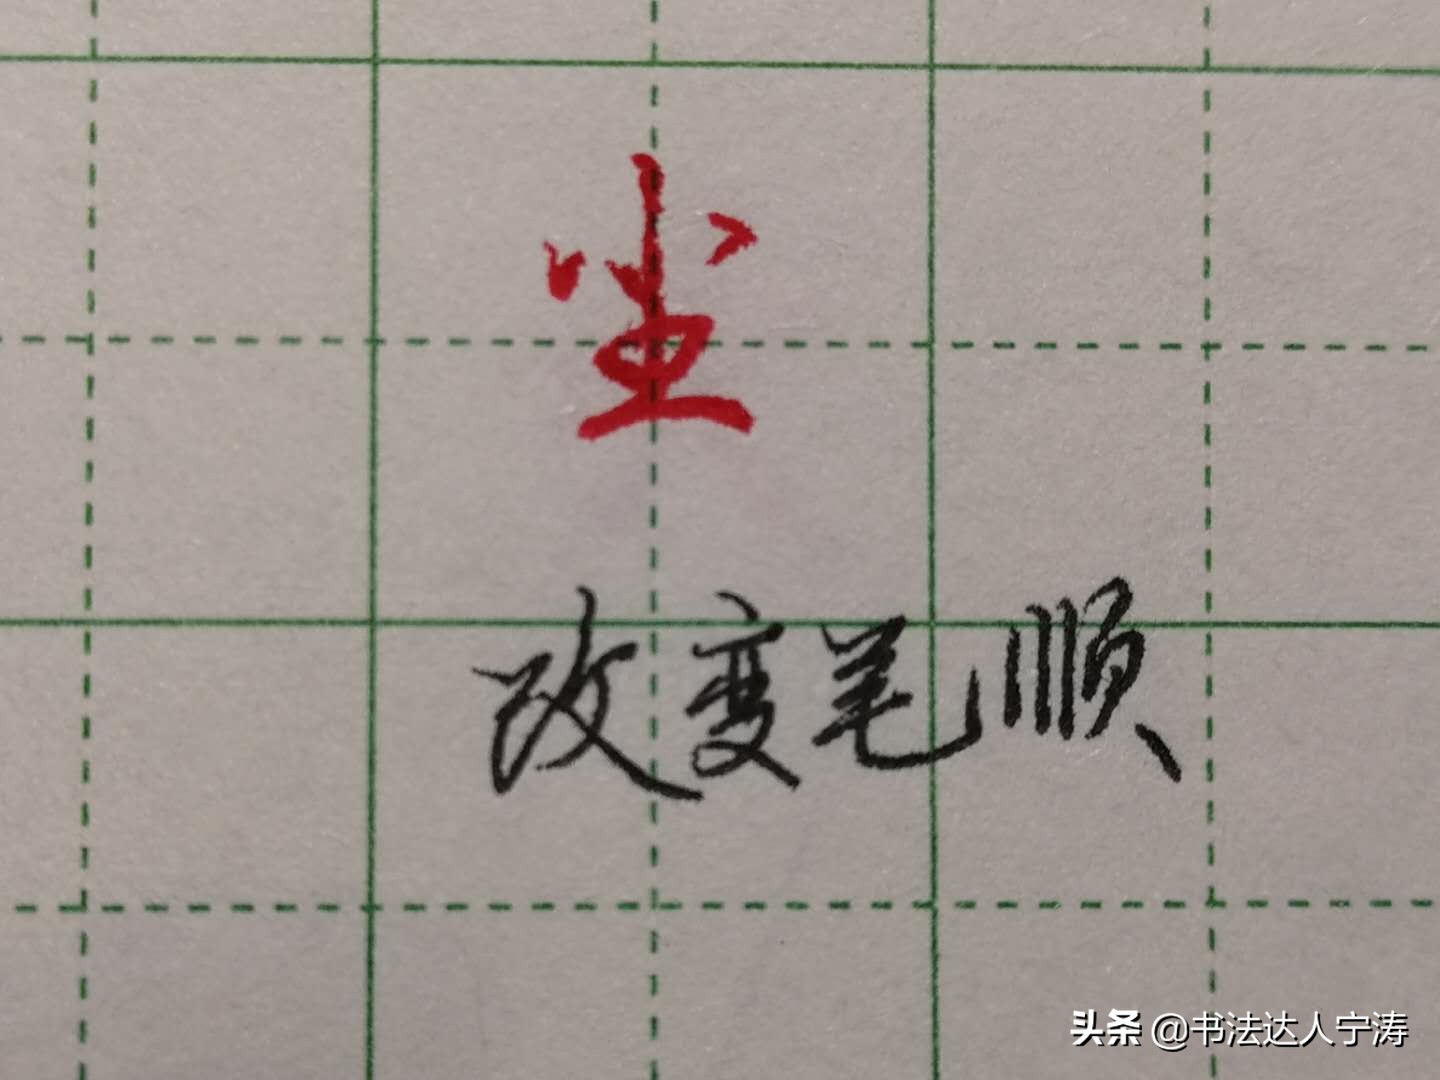 尘
改变笔顺
头条 @书法达人宁涛